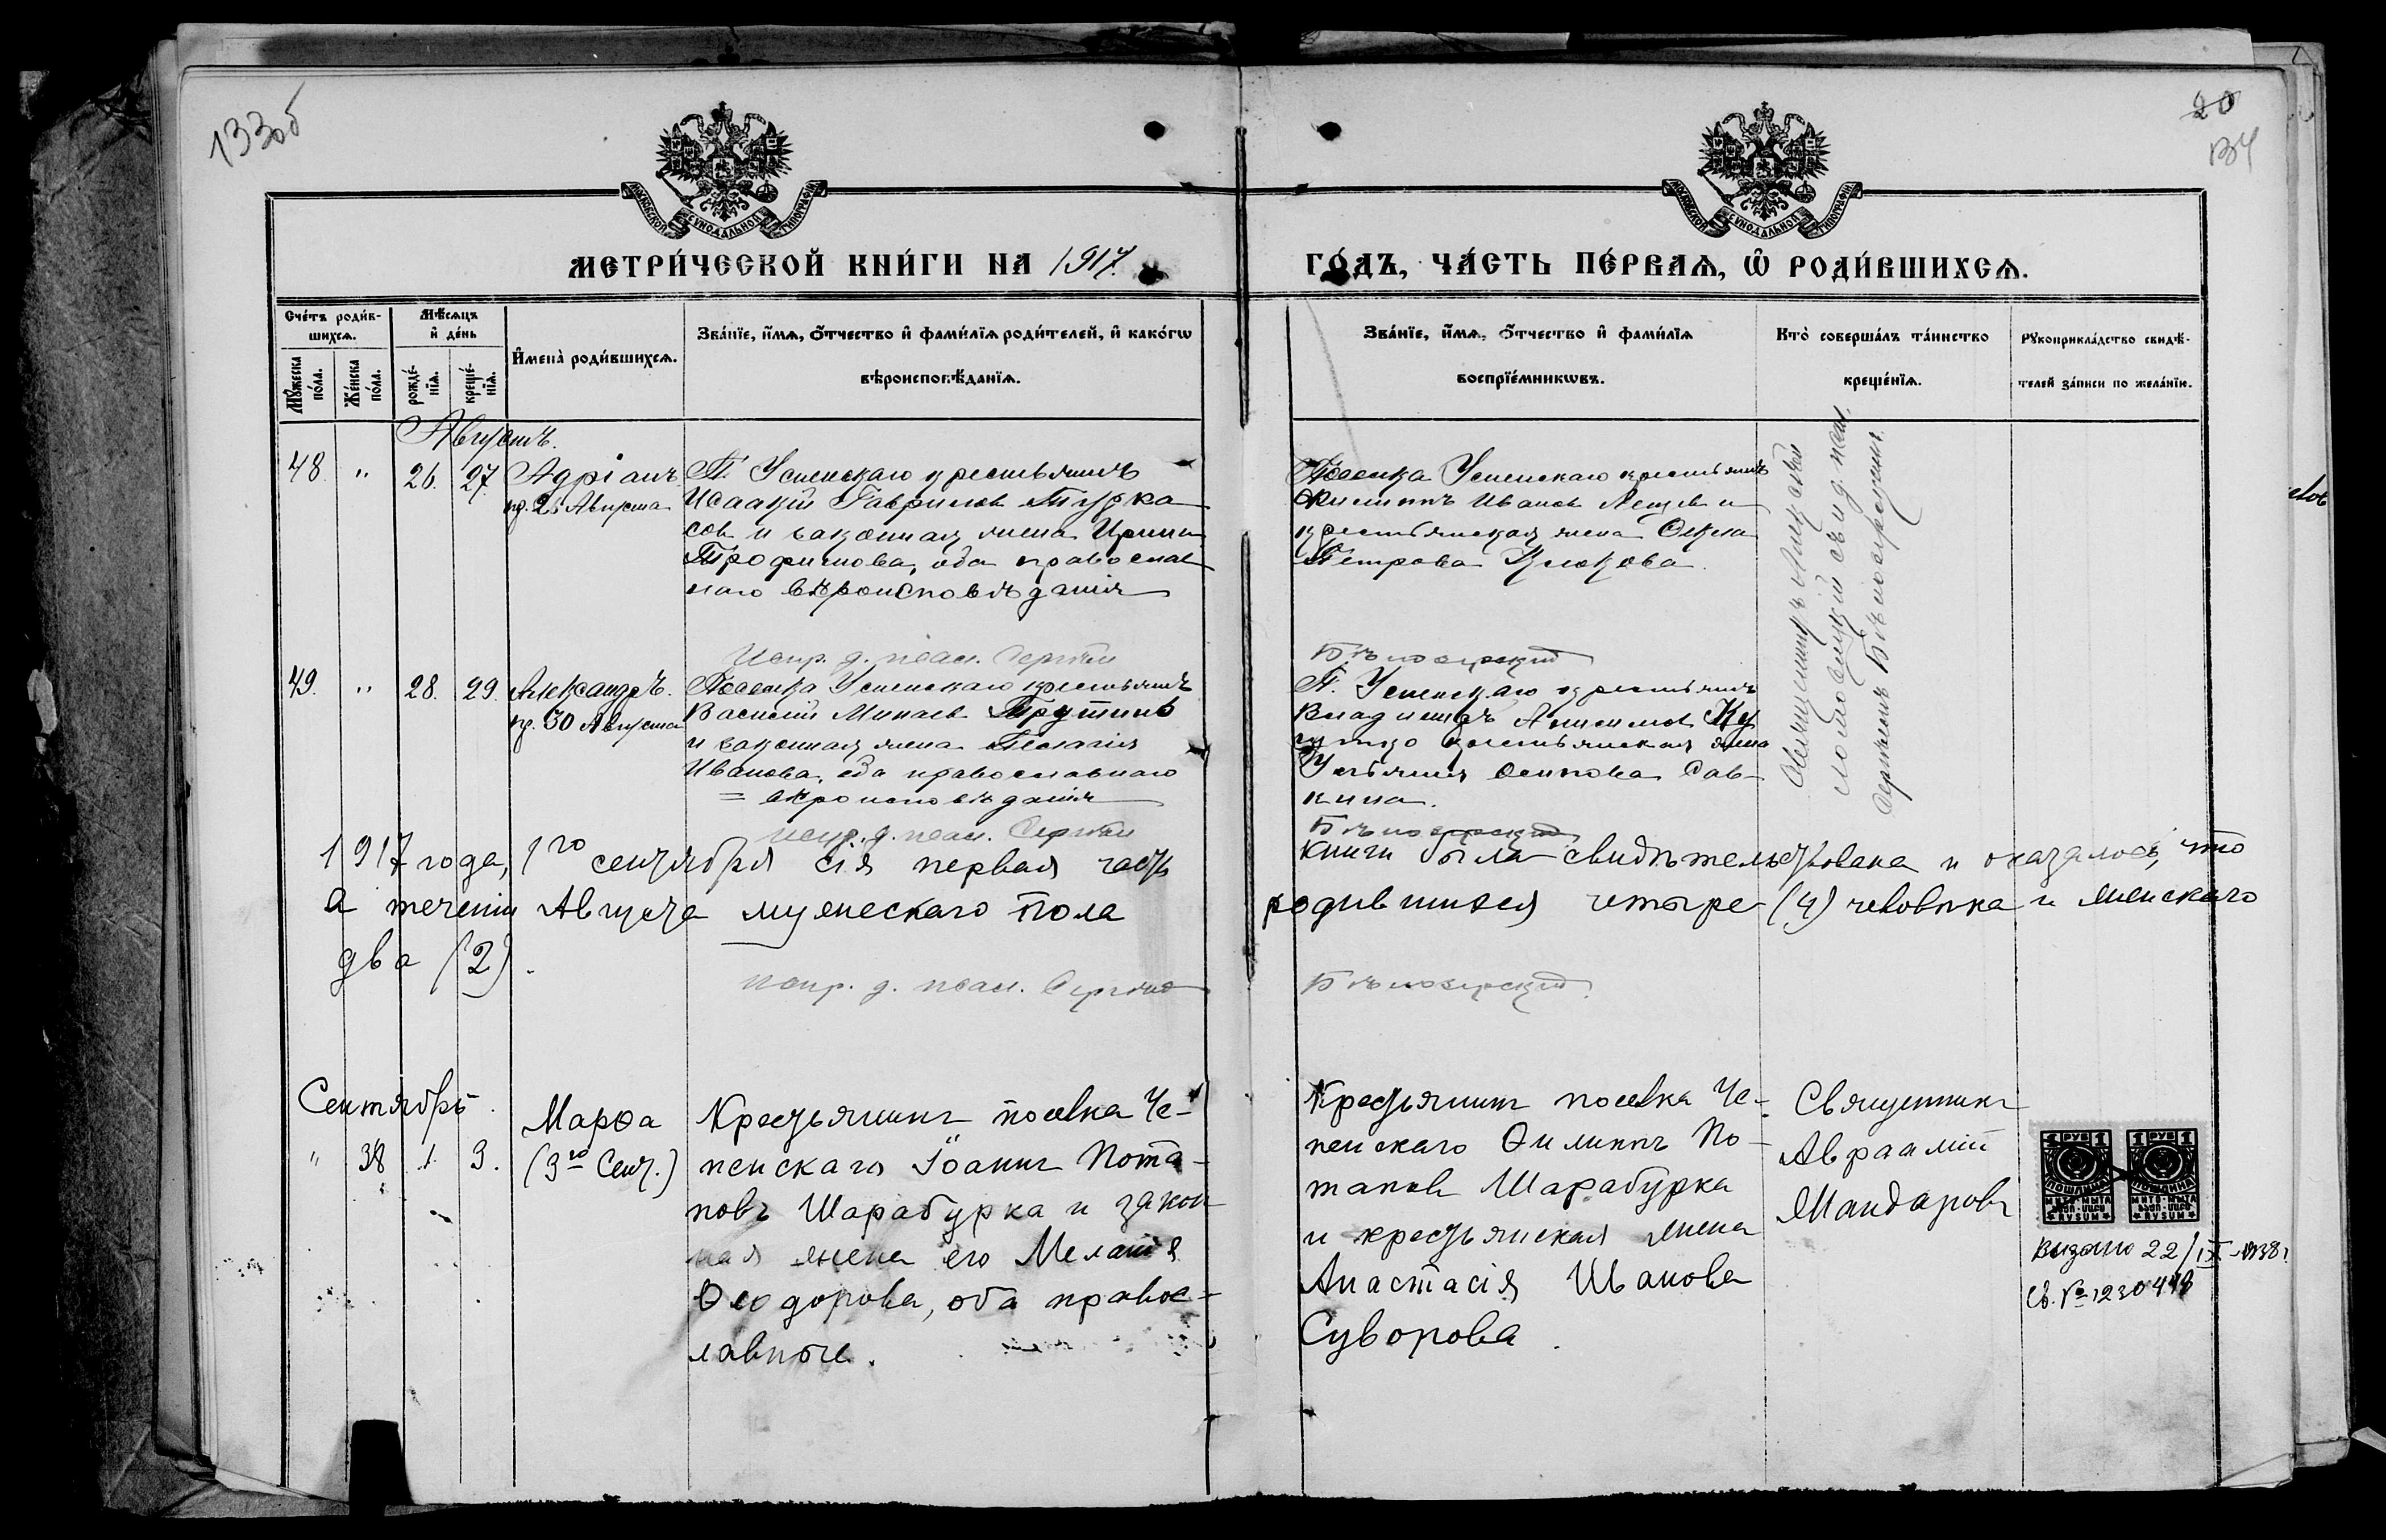 133об
20
134
МОСКОВСКОЙ СѴНОДАЛЬНОЙ ТИПОГРАФІИ
МОСКОВСКОЙ СѴНОДАЛЬНОЙ ТИПОГРАФІИ
МЕТРИ́ЧЕСКОЙ КНИ́ГИ НА 1917.
ГО́ДЪ, ЧА́СТЬ ПЕ́РВАѦ, Ѡ҆ РОДИ́ВШИХСѦ.
Сче́тъ роди́в-
шихсѧ.
Мꙋ́жеска по́ла.
Же́нска по́ла.
Мѣ́сѧцъ
и҆ де́нь
рожде́-
нїѧ.
креще́-
нїѧ.
И҆мена̀ роди́вшихсѧ.
Зва́нїе, и҆́мѧ, ѻ҆́тчество и҆ фами́лїѧ роди́телей, и҆ како́гѡ
вѣроисповѣ́данїѧ.
Зва́нїе, и҆́мѧ, ѻ҆́тчество и҆ фами́лїѧ
воспрїе́мникѡвъ.
Кто̀ соверша́лъ та́инство
креще́нїѧ.
Рꙋкоприкла́дство свидѣ́-
телей за́писи по жела́нїю.
Августъ.
48. " 26. 27. Адріанъ
пр. 26 Августа
П. Успенскаго крестьянинъ
Исаакій Гаврилов Турка
сов и законная жена Ирина
Трофимова, оба православ
наго вѣроисповѣданія
Поселка Успенскаго крестьянинъ
Филиппъ Иванов Лещев и
крестьянская жена Ѳекла
Петрова Клюкова.
Испр. д. псал. Сергѣй
Бѣлозерский
49. " 28. 29. Александръ.
пр. 30 Августа
Поселка Успенскаго крестьянинъ
Василий Минаев Трутнев
и законная жена Пелагия
Иванова, оба православнаго
= вѣроисповѣдания
П. Успенскаго крестьянинъ
Владимiръ Анисимов Ку
крестьянская жена
Ульяния Осипова Сав-
кина.
Испр. д. псал. Сергѣй
Бѣлозерский
Священникъ
съ и. д. псал.
Сергѣемъ Бѣлозерскимъ.
1917 года, 1го сентября сія первая часть
книги была свидѣтельствована и оказалось, что
в теченіи Августа мужескаго пола
родившихся четыре (4) человѣка и женскаго
два (2).
Испр. д. псал. Сергѣй
Бѣлозерский.
Сентябрь.
" 38 1. 3.
Марѳа
(3го Сент.)
Крестьянинъ поселка Че-
пенскаго Іоаннъ Пота-
повъ Шарабурка и закон
ная жена его Меланія
Ѳеодорова, оба правос-
лавные.
Крестьянинъ поселка Че-
пенскаго Ѳилиппъ По-
тапов Шарабурка
и крестьянская жена
Анастасія Иванова
Суворова.
Священникъ
Авраамій
Мандаровъ
1 РУБ 1
ПОШЛИНА
МИТО-МЫТА
RYSUM
1 РУБ 1
ПОШЛИНА
МИТО-МЫТА
RYSUM
Выдано 22/IX-1938г
Св. № 1230448